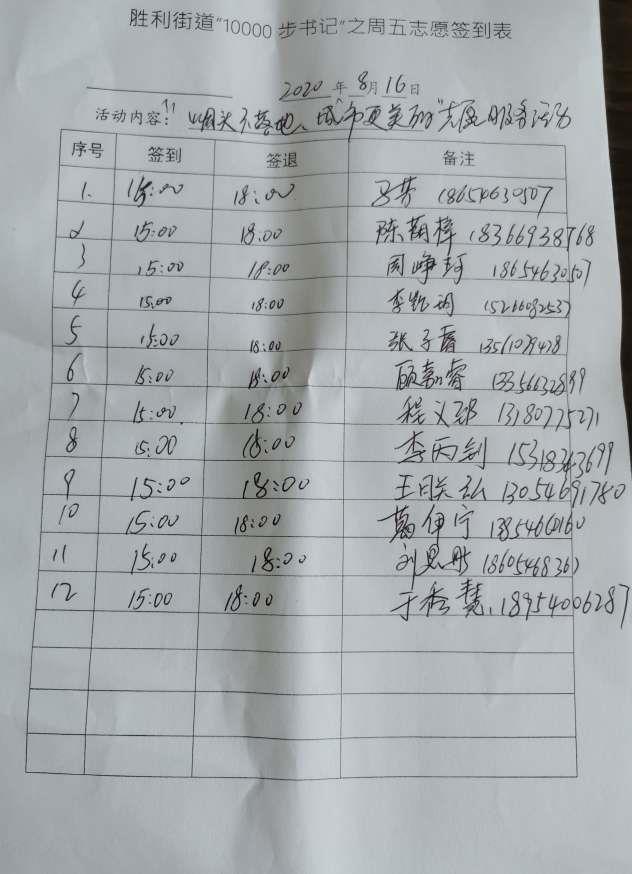 胜利街道"10000步书记"之周五志愿签到表
2020年8月16日
活动内容："烟头不落地、城市更美丽"志愿服务活动
序号 签到 签退 备注
1. 15:00 18:00 18654630507
2 15:00 18:00 陈 梓 18366938768
3 15:00 18:00 周峥珂 18654630507
4 15:00 18:00 李 15266082537
5 15:00 18:00 张子睿
6 15:00 18:00 顾嘉睿
7 15:00 18:00 程义郅 13180775271
8 15:00 18:00 李丙剑
9 15:00 18:00 王 13054691780
10 15:00 18:00 葛伊宁 13854660160
11 15:00 18:00 刘恩彤
12 15:00 18:00 于秀慧 18954006287